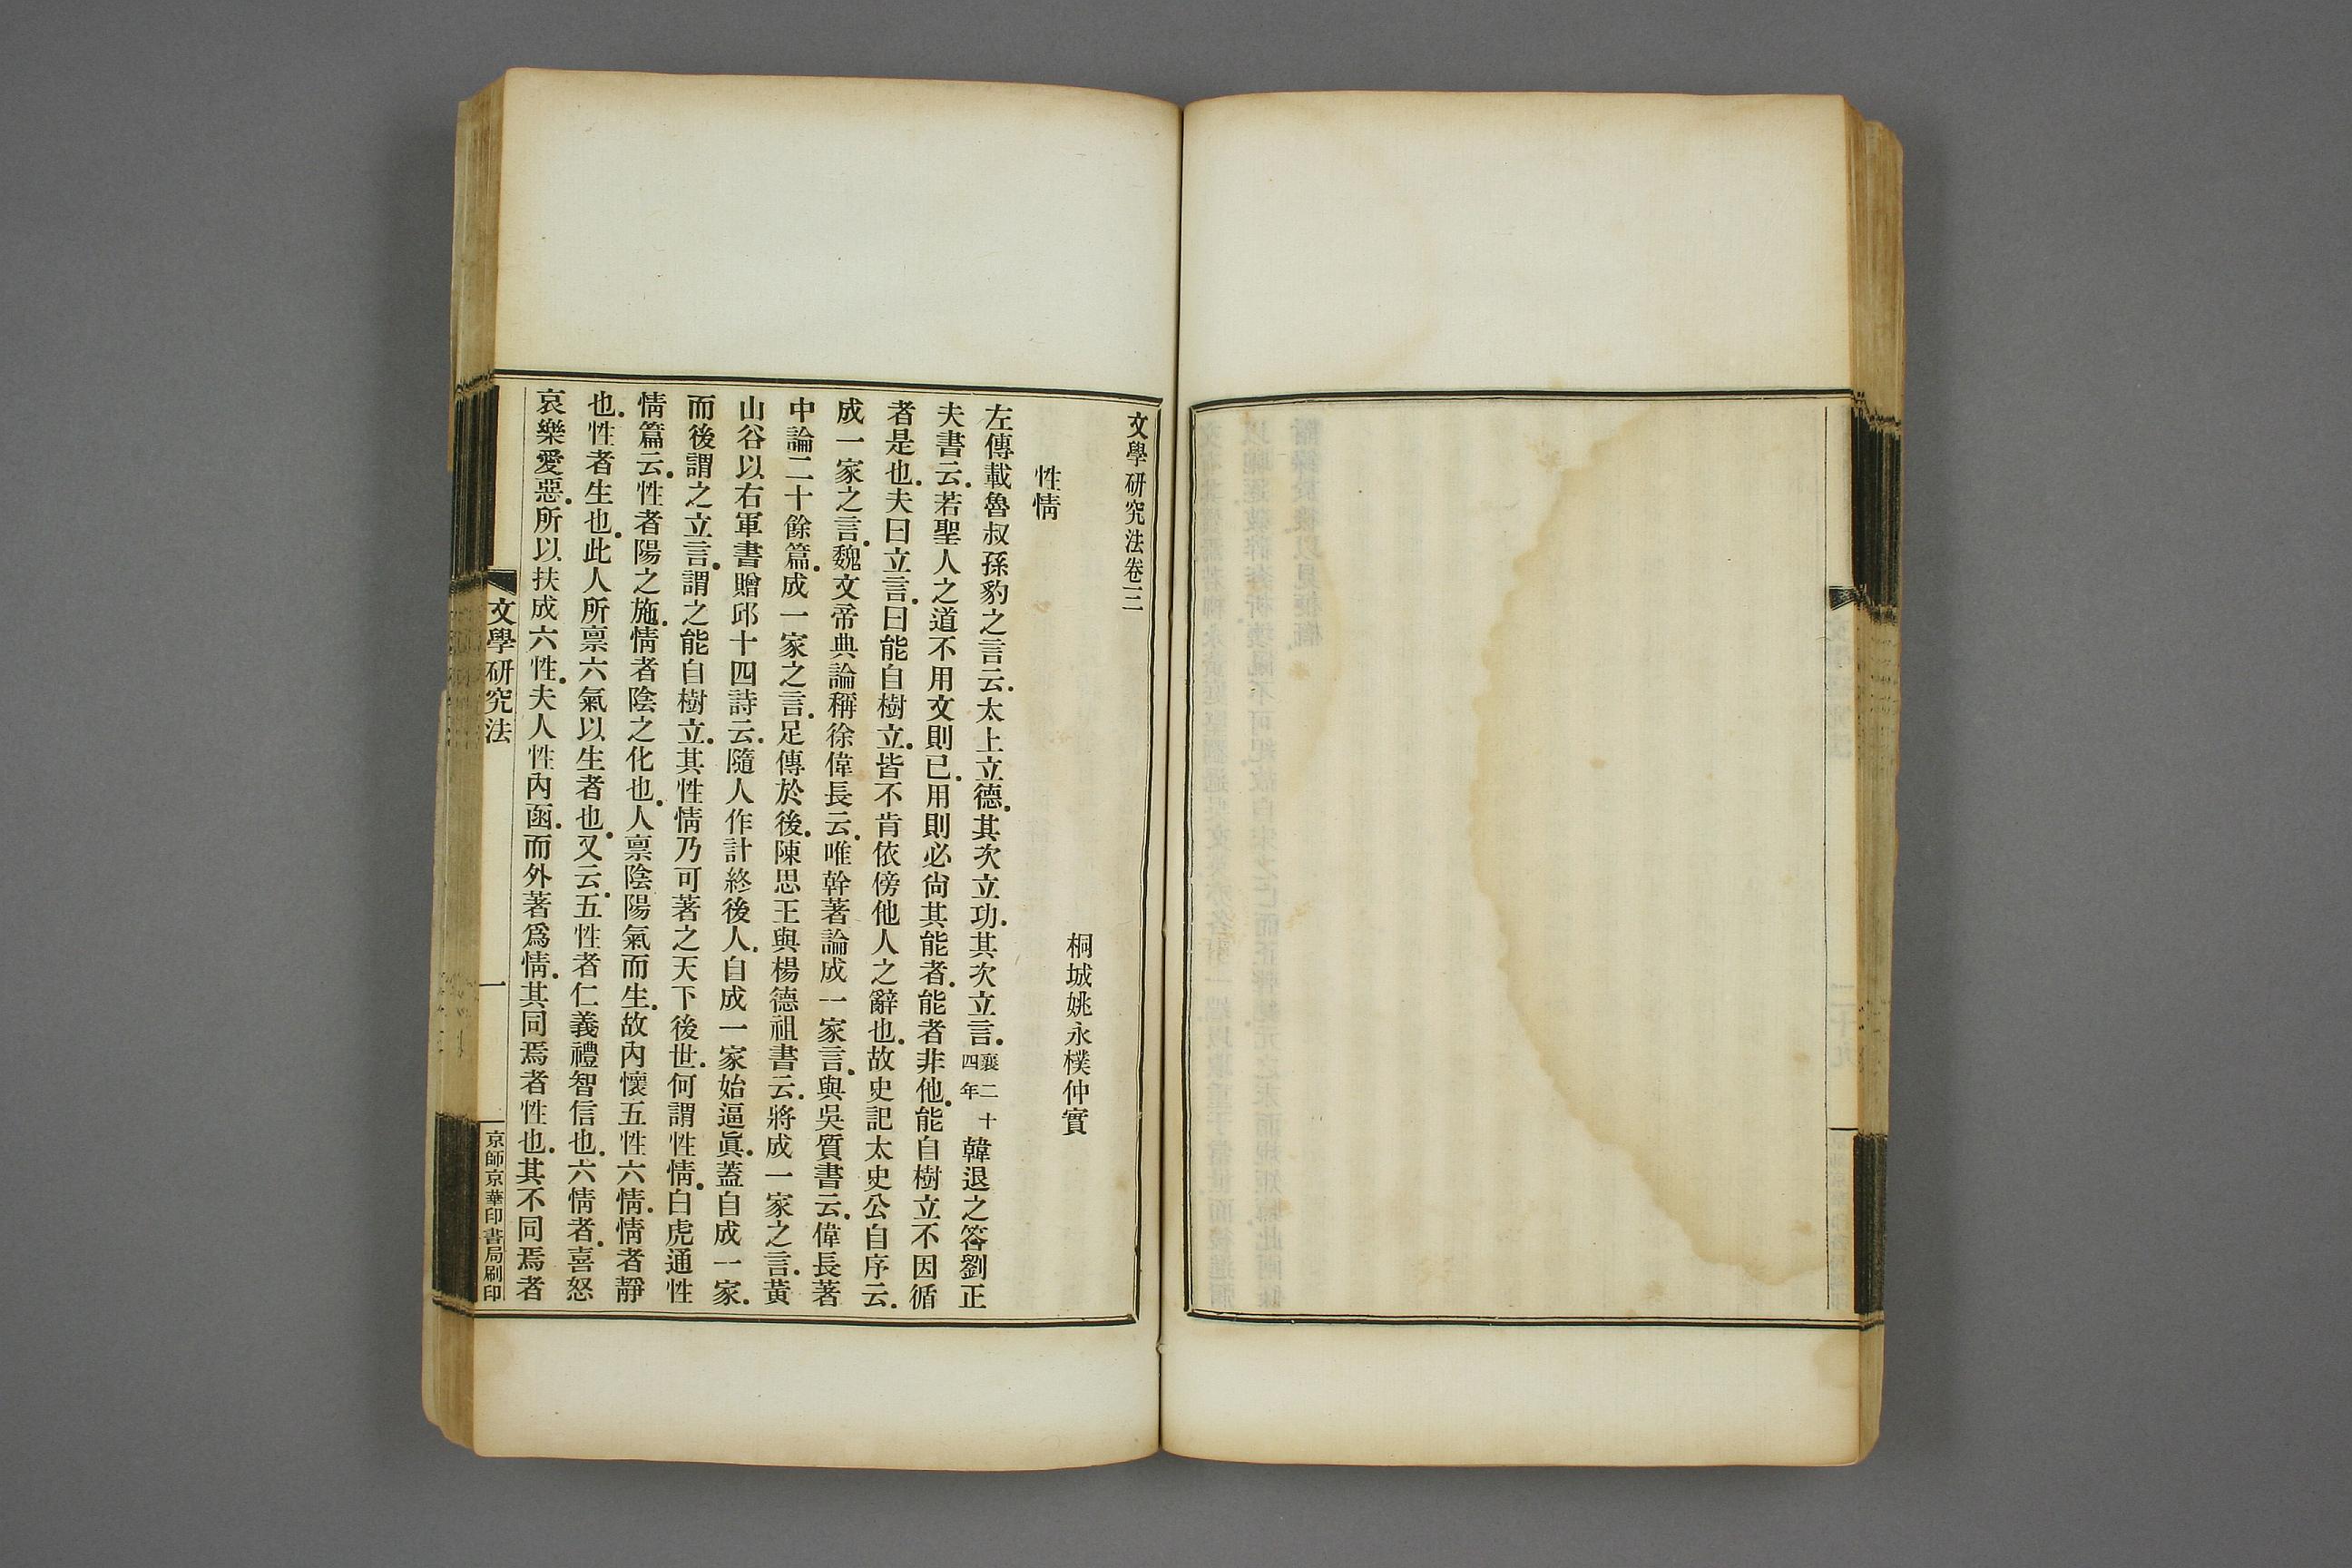 文學研究法卷三
桐城姚永樸仲實
性情
左傳載魯叔孫豹之言云.太上立德.其次立功.其次立言.襄二十四年韓退之答劉正
夫書云.若聖人之道不用文則已.用則必尙其能者.能者非他.能自樹立不因循
者是也.夫曰立言.曰能自樹立.皆不肯依傍他人之辭也.故史記太史公自序云.
成一家之言.魏文帝典論稱徐偉長云.唯幹著論成一家言.與吳質書云.偉長著
中論二十餘篇.成一家之言.足傳於後.陳思王與楊德祖書云.將成一家之言.黃
山谷以右軍書贈邱十四詩云.隨人作計終後人.自成一家始逼眞.蓋自成一家.
而後謂之立言.謂之能自樹立.其性情乃可著之天下後世.何謂性情.白虎通性
情篇云.性者陽之施.情者陰之化也.人禀陰陽氣而生.故內懷五性六情.情者靜
也.性者生也.此人所禀六氣以生者也.又云.五性者仁義禮智信也.六情者.喜怒
哀樂愛惡.所以扶成六性.夫人性內函.而外著爲情.其同焉者性也.其不同焉者
文學研究法
一
京師京華印書局刷印